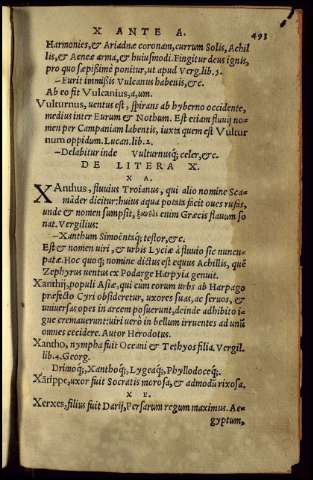 X ANTE A. 493
Harmonies, & Ariadnæ coronam, currum Solis, Achil
lis, & Aeneæ arma, & huiusmodi. Fingitur deus ignis,
pro quo sæpißimè ponitur, ut apud Verg. lib. 5.
–Furit immißis Vulcanus habenis, &c.
Ab eo fit Vulcanius, a, um.
Vulturnus, uentus est, spirans ab hyberno occidente,
medius inter Eurum & Nothum. Est etiam fluuij no-
men per Campaniam labentis, iuxta quem est Vultur
num oppidum. Lucan. lib. 2.
–Delabitur inde Vulturnusq́;, celer, &c.
DE LITERA X.
X A.
XAnthus, fluuius Troianus, qui alio nomine Sca-
mãder dicitur: huius aqua potata facit oues rufas,
unde & nomen sumpsit, ξανθὸν enim Græcis flauum so
nat. Vergilius:
–Xanthum Simoëntaq́; testor, &c.
Est & nomen uiri, & urbis Lyciæ à fluuio sic nuncu-
patæ. Hoc quoq; nomine dictus est equus Achillis, quẽ
Zephyrus uentus ex Podarge Harpyia genuit.
Xanthij, populi Asiæ, qui cum eorum urbs ab Harpago
præfecto Cyri obsideretur, uxores suas, ac seruos, &
uniuersas opes in arcem posuerunt, deinde adhibito i-
gne cremauerunt: uiri uerò in bellum irruentes ad unũ
omnes cecidere. Autor Herodotus.
Xantho, nympha fuit Oceani & Tethyos filia. Vergil.
lib. 4. Georg.
Drimoq́;, Xanthoq́;, Lygeaq́;, Phyllodoceq́;.
Xãtippe, uxor fuit Socratis morosa, & admodũ rixosa.
X E.
Xerxes, filius fuit Darij, Persarum regum maximus. Ae-
gyptum,